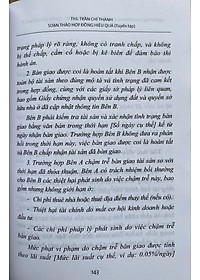 THS. TRẦN CHÍ THÀNH
SOẠN THẢO HỢP ĐỒNG HIỆU QUẢ (Tuyển tập)
trạng pháp lý rõ ràng, không có tranh chấp, và không
bị thế chấp, cầm cố hoặc bị kê biên để đảm bảo thi
hành án.
2. Bàn giao được coi là hoàn tất khi Bên B nhận được
toàn bộ tài sản theo đúng mô tả và tình trạng đã cam kết
trong hợp đồng, cùng với các giấy tờ pháp lý liên quan,
bao gồm Giấy chứng nhận quyền sử dụng đất và quyền sở
hữu nhà ở đã cập nhật thông tin Bên B.
Bên B phải kiểm tra và xác nhận tình trạng bàn
giao bằng văn bản trong thời hạn [Số ngày cụ thể] kể từ
ngày nhận bàn giao. Trường hợp Bên B không đưa ra phản
hồi trong thời hạn này, việc bàn giao được coi là hoàn tất
và Bên B chấp nhận tài sản đã bàn giao.
3. Trường hợp Bên A chậm trễ bàn giao tài sản so với
thời hạn đã thỏa thuận, Bên A có trách nhiệm bồi thường
cho Bên B các thiệt hại phát sinh do việc chậm trễ này, bao
gồm nhưng không giới hạn ở:
- Chi phí thuê nhà hoặc thuê địa điểm thay thế (nếu có);
- Thiệt hại tài chính do mất cơ hội kinh doanh hoặc
đầu tư.
- Các chi phí pháp lý phát sinh do việc chậm trễ
bàn giao.
Mức phạt vi phạm do chậm trễ bàn giao được tính
theo lãi suất [Mức lãi suất cụ thể, ví dụ: 0.05%/ngày]
143